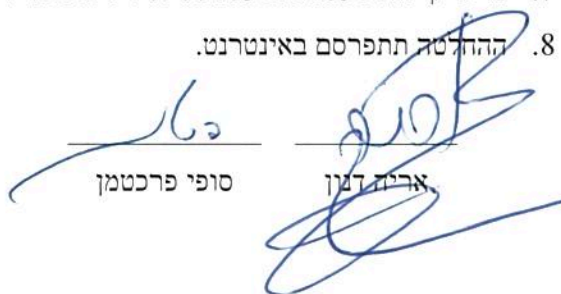 8. ההחלטה תתפרסם באינטרנט.
אריה דנון סופי פרכטמן